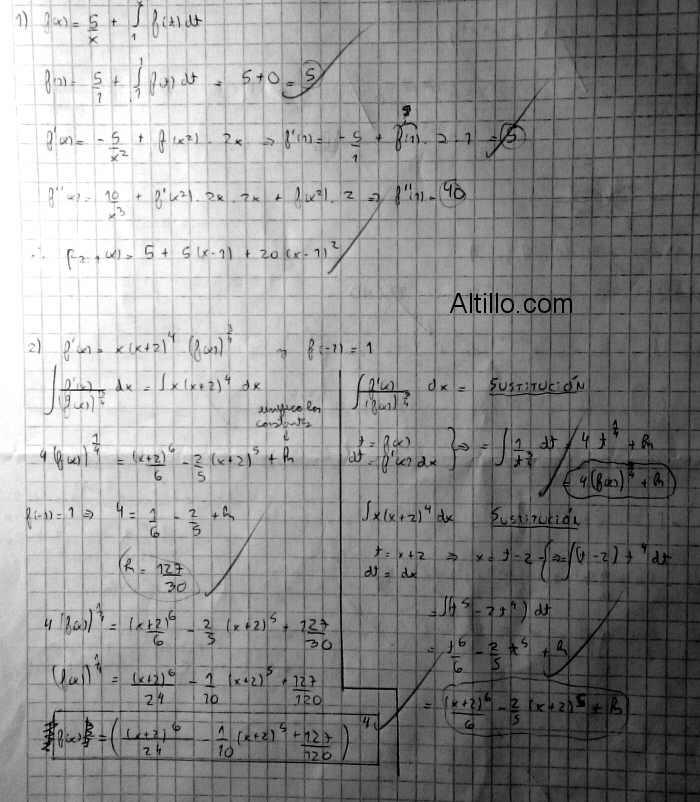 1) f(x) = 5/x + ∫₁ˣ f(t) dt
f(1) = 5/1 + ∫₁¹ f(t) dt = 5 + 0 = 5
f'(x) = -5/x² + f(x²) . 2x ⇒ f'(1) = -5/1 + f(1) . 2 . 1 = 5
5
f''(x) = 10/x³ + f'(x²) . 2x . 2x + f(x²) . 2 ⇒ f''(1) = 40
∴ (x) = 5 + 5(x-1) + 20(x-1)²
Altillo.com
2) f'(x) = x(x+2)⁴ (f(x))^(3/4) f(-1) = 1
∫ f'(x)/(f(x))^(3/4) dx = ∫ x(x+2)⁴ dx
unifico las
constantes
4(f(x))^(1/4) = (x+2)⁶/6 - 2/5 (x+2)⁵ + k
f(-1) = 1 ⇒ 4 = 1/6 - 2/5 + k
k = 127/30
4(f(x))^(1/4) = (x+2)⁶/6 - 2/5 (x+2)⁵ + 127/30
(f(x))^(1/4) = (x+2)⁶/24 - 1/10 (x+2)⁵ + 127/120
f(x) = ((x+2)⁶/24 - 1/10 (x+2)⁵ + 127/120)⁴
∫ f'(x)/(f(x))^(3/4) dx = SUSTITUCIÓN
t = f(x)
dt = f'(x) dx } ⇒ = ∫ 1/t^(3/4) dt = 4 t^(1/4) + k
= 4(f(x))^(1/4) + k
∫ x(x+2)⁴ dx SUSTITUCIÓN
t = x+2 ⇒ x = t-2 ⇒ = ∫(t-2) t⁴ dt
dt = dx
= ∫(t⁵ - 2t⁴) dt
= t⁶/6 - 2/5 t⁵ + k
= (x+2)⁶/6 - 2/5 (x+2)⁵ + k